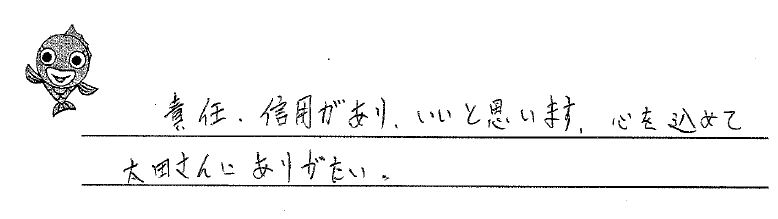 責任、信用があり、いいと思います、心を込めて
太田さんにありがたい。